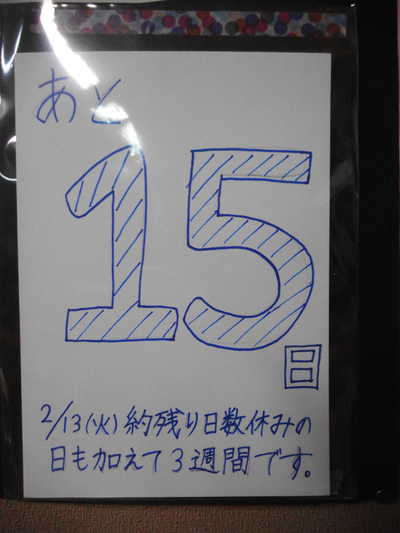 あと
15
日
2/13(火)約残り日数休みの
日も加えて3週間です。